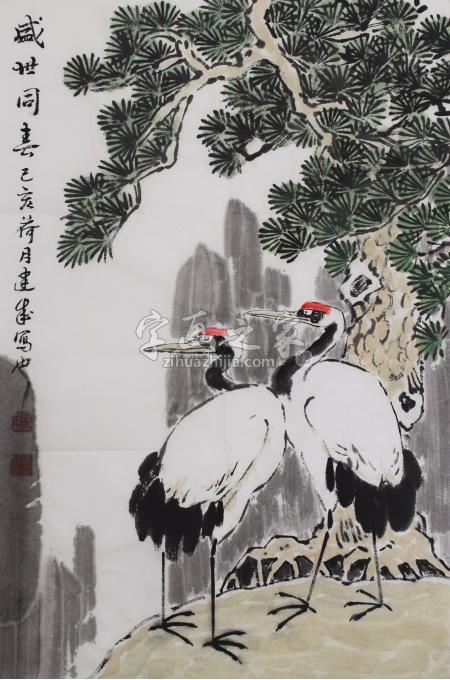 盛世同春己亥荷月建成写也
字画之家
zihuazhijia.com